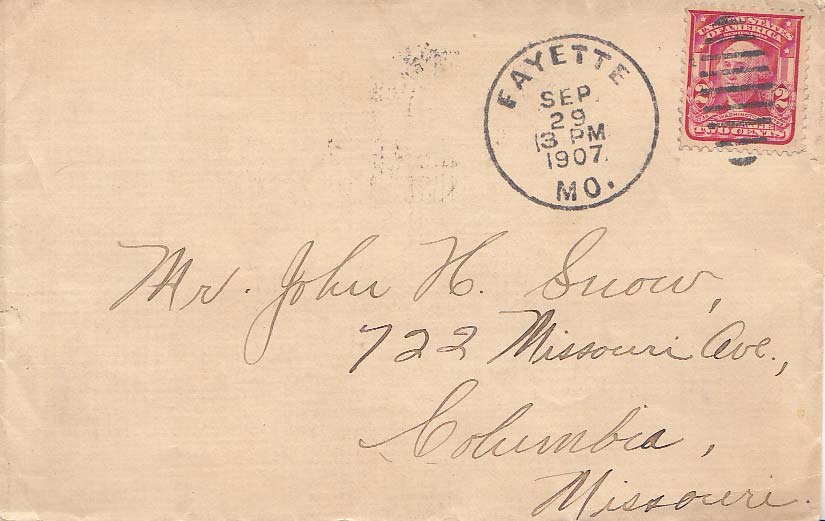 FAYETTE
SEP.
29
3 PM
1907.
MO.
UNITED STATES
OF AMERICA
2 2
WASHINGTON
TWO CENTS
Mr. John H. Snow,
722 Missouri Ave.,
Columbia,
Missouri.